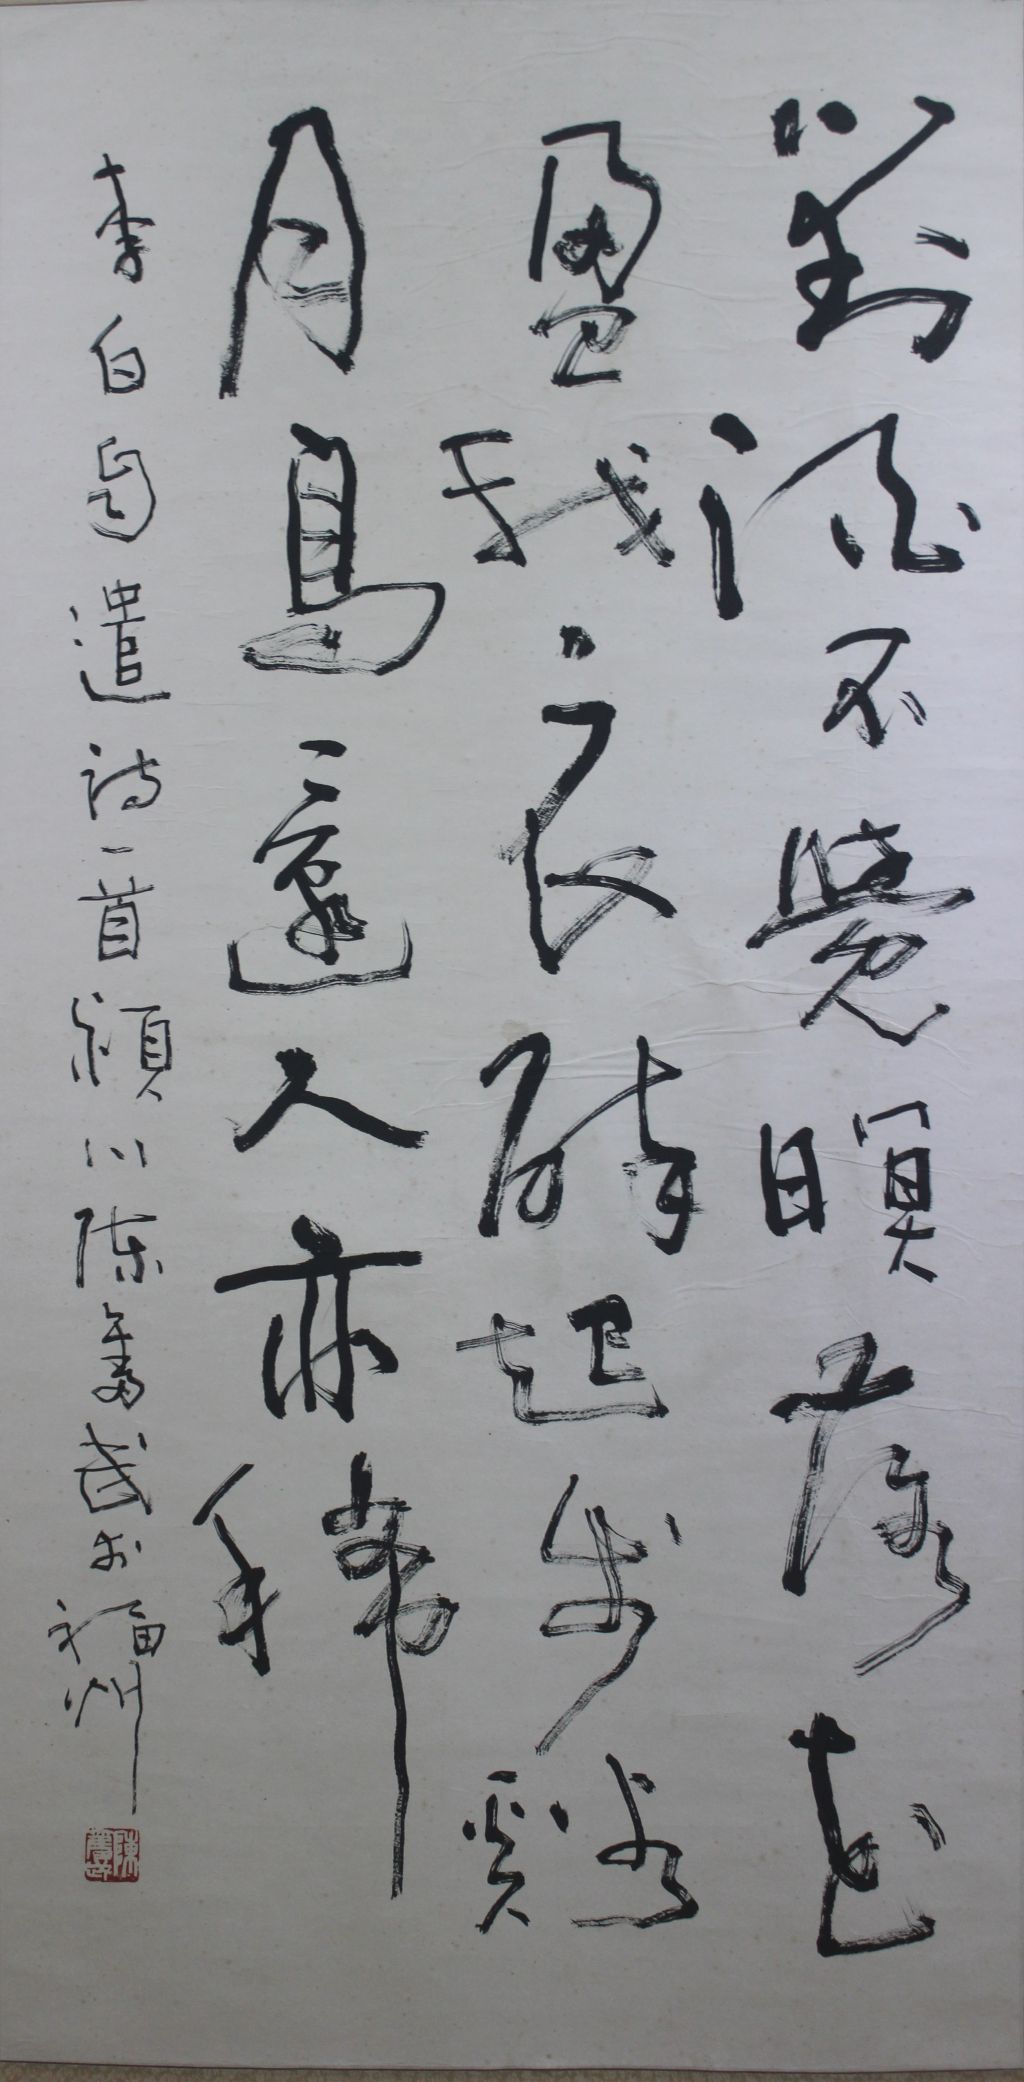 對酒不覺暝落花
盈我衣醉起步谿
月鳥還人亦稀
李白自遣詩一首潁川陳奮武於福州
陳奮武